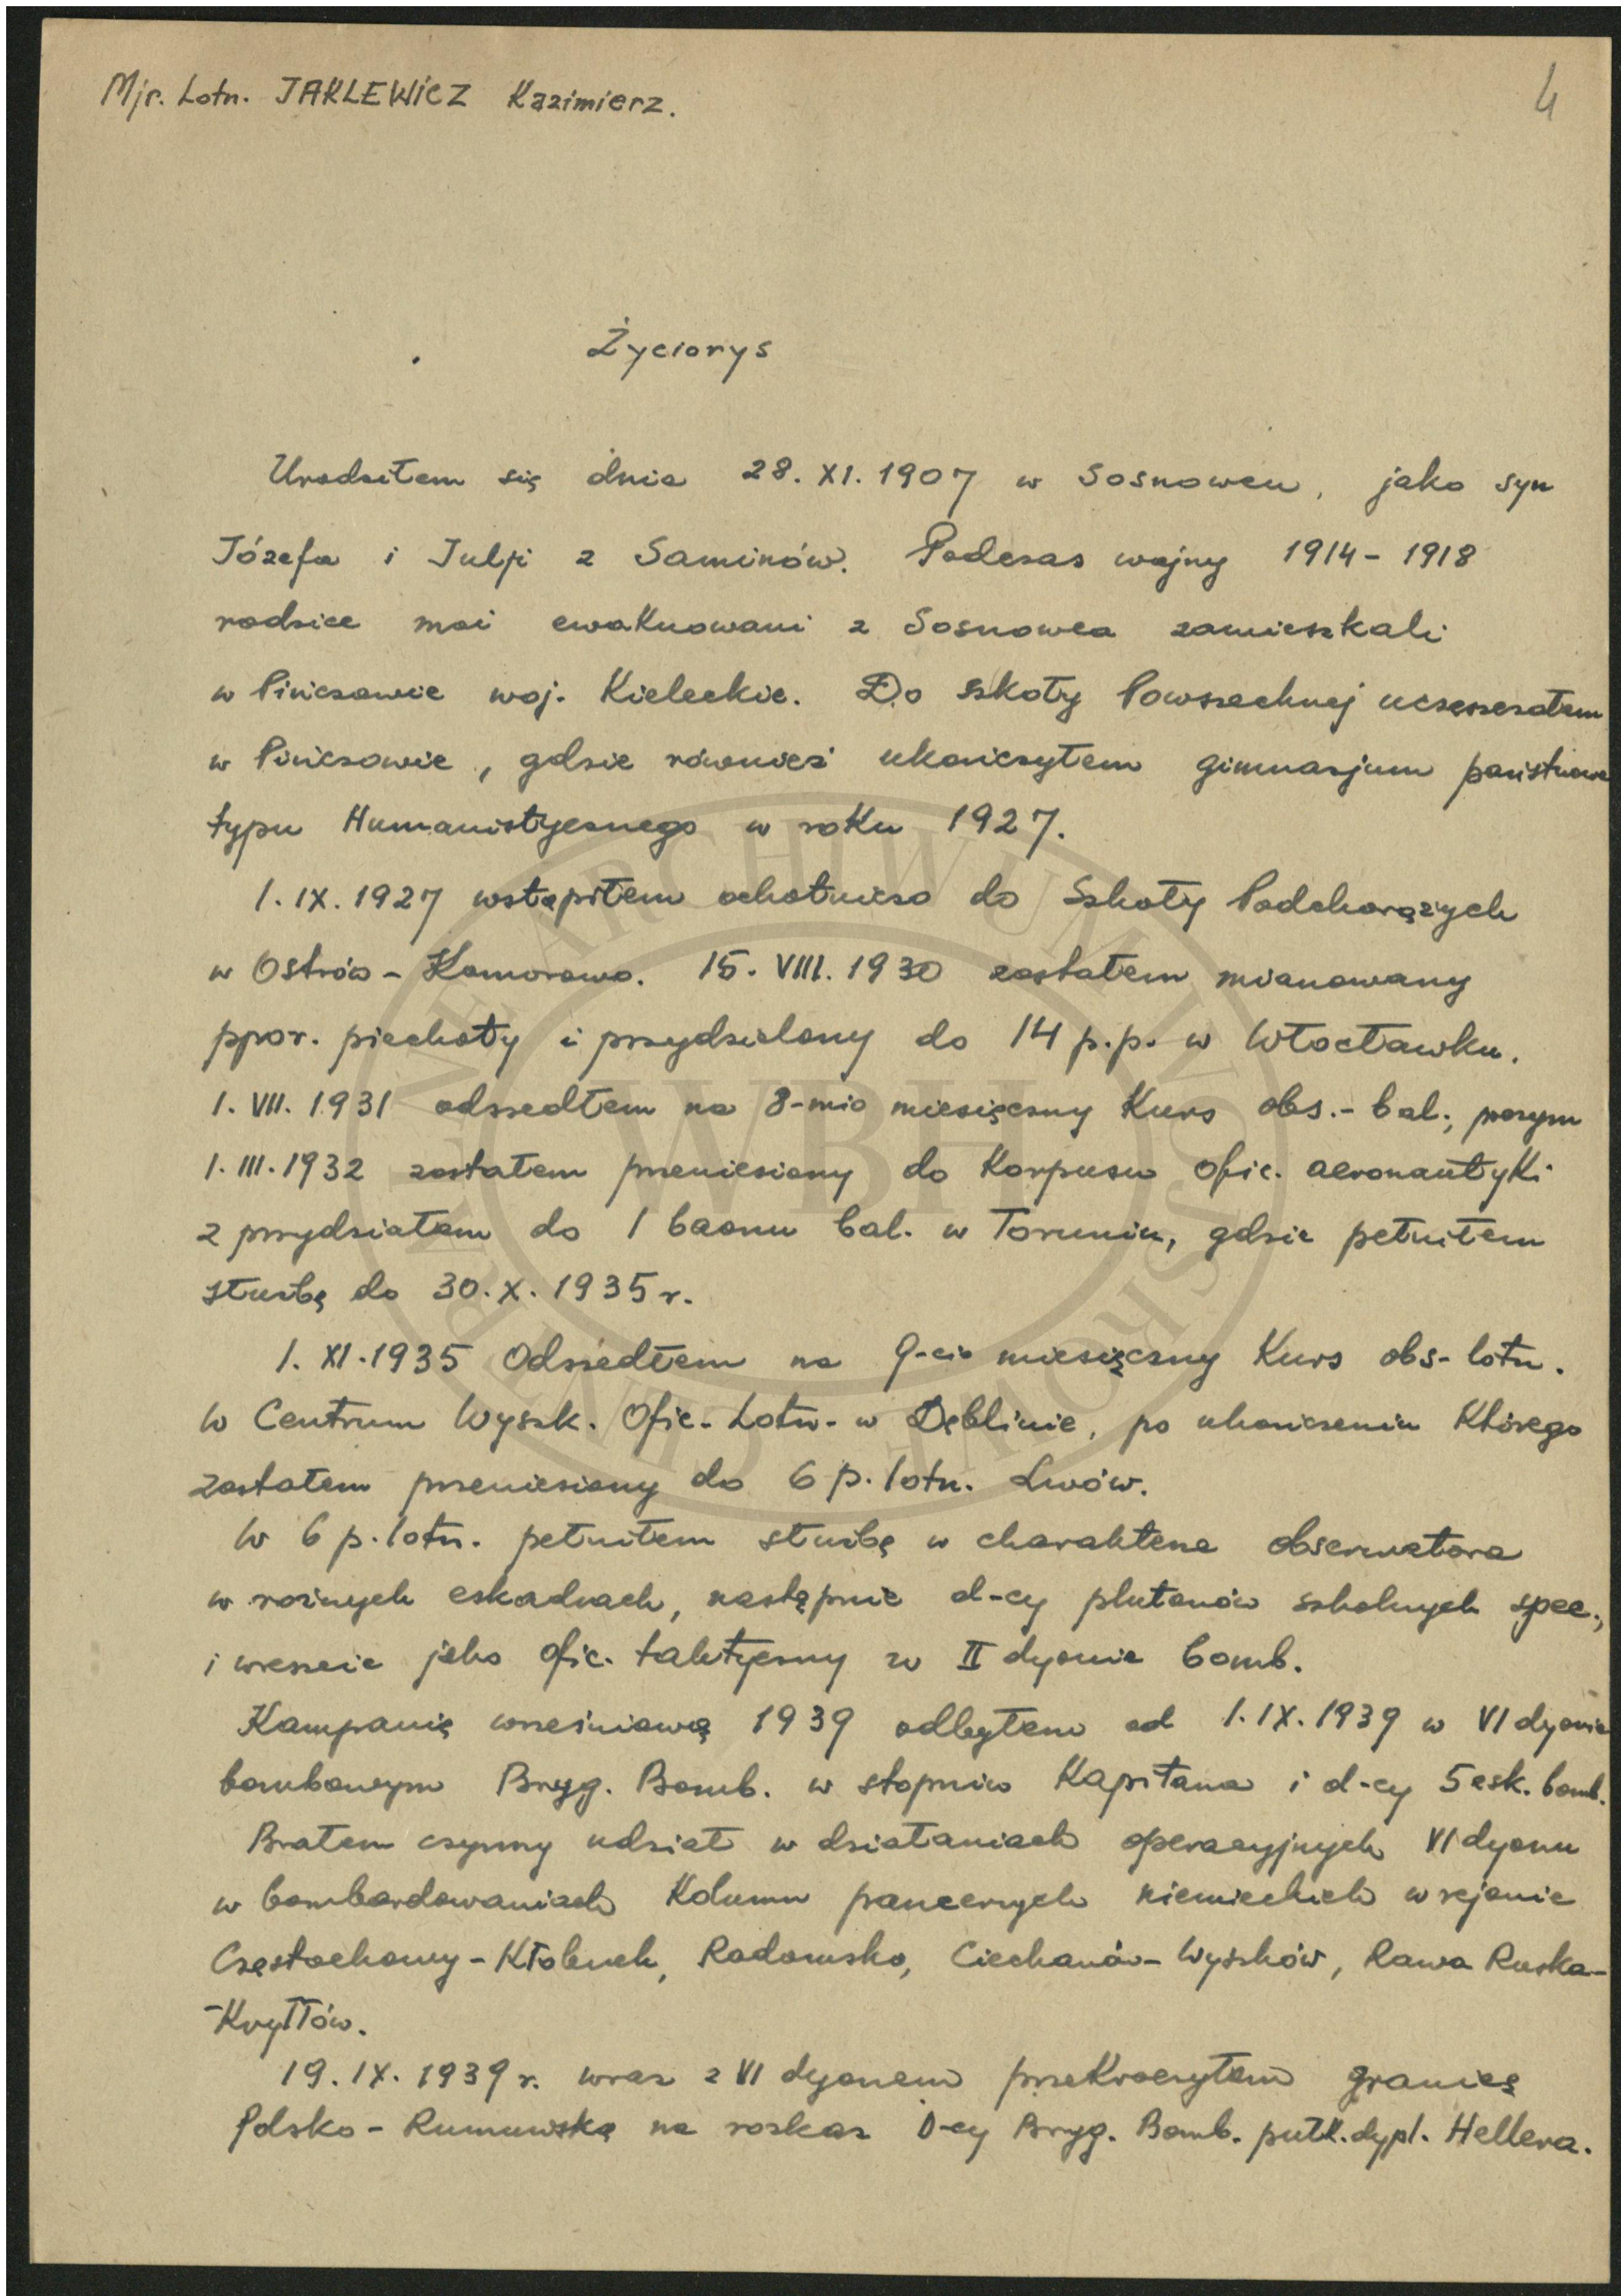 Mjr. Lotn. JAKLEWICZ Kazimierz.
4
Życiorys
Urodziłem się dnia 28. XI. 1907 w Sosnowcu, jako syn
Józefa i Julji z Saminów. Podczas wojny 1914 - 1918
rodzice moi ewakuowani z Sosnowca zamieszkali
w Pińczowie woj. Kieleckie. Do szkoły Powszechnej uczęszczałem
w Pińczowie, gdzie również ukończyłem gimnazjum państwowe
typu Humanistycznego w roku 1927.
1. IX. 1927 wstąpiłem ochotniczo do Szkoły Podchorążych
w Ostrów - Komorowo. 15. VIII. 1930 zostałem mianowany
ppor. piechoty i przydzielony do 14 p.p. w Włocławku.
1. VII. 1931 odszedłem na 8-mio miesięczny Kurs obs.- bal., poczym
1. III. 1932 zostałem przeniesiony do Korpusu Ofic. aeronautyki
z przydziałem do 1 baonu bal. w Toruniu, gdzie pełniłem
służbę do 30. X. 1935 r.
1. XI. 1935 Odszedłem na 9-cio miesięczny Kurs obs- lotn.
w Centrum Wyszk. Ofic- Lotn- w Dęblinie, po ukończeniu Którego
zostałem przeniesiony do 6 p. lotn. Lwów.
W 6 p. lotn. pełniłem służbę w charakterze obserwatora
w różnych eskadrach, następnie d-cy plutonów szkolnych spec.,
i wreszcie jako ofic. taktyczny w II dyonie bomb.
Kampanię wrześniową 1939 odbyłem od 1. IX. 1939 w VI dyonie
bombowym Bryg. Bomb. w stopniu Kapitana i d-cy 5 esk. bomb.
Brałem czynny udział w działaniach operacyjnych VI dyonu
w bombardowaniach Kolumn pancernych niemieckich w rejonie
Częstochowy - Kłobuck, Radomsko, Ciechanów - Wyszków, Rawa Ruska-
-Kryłów.
19. IX. 1939 r. wraz z VI dyonem przekroczyłem granicę
Polsko - Rumuńską na rozkaz D-cy Bryg. Bomb. pułk. dypl. Hellera.
WBH